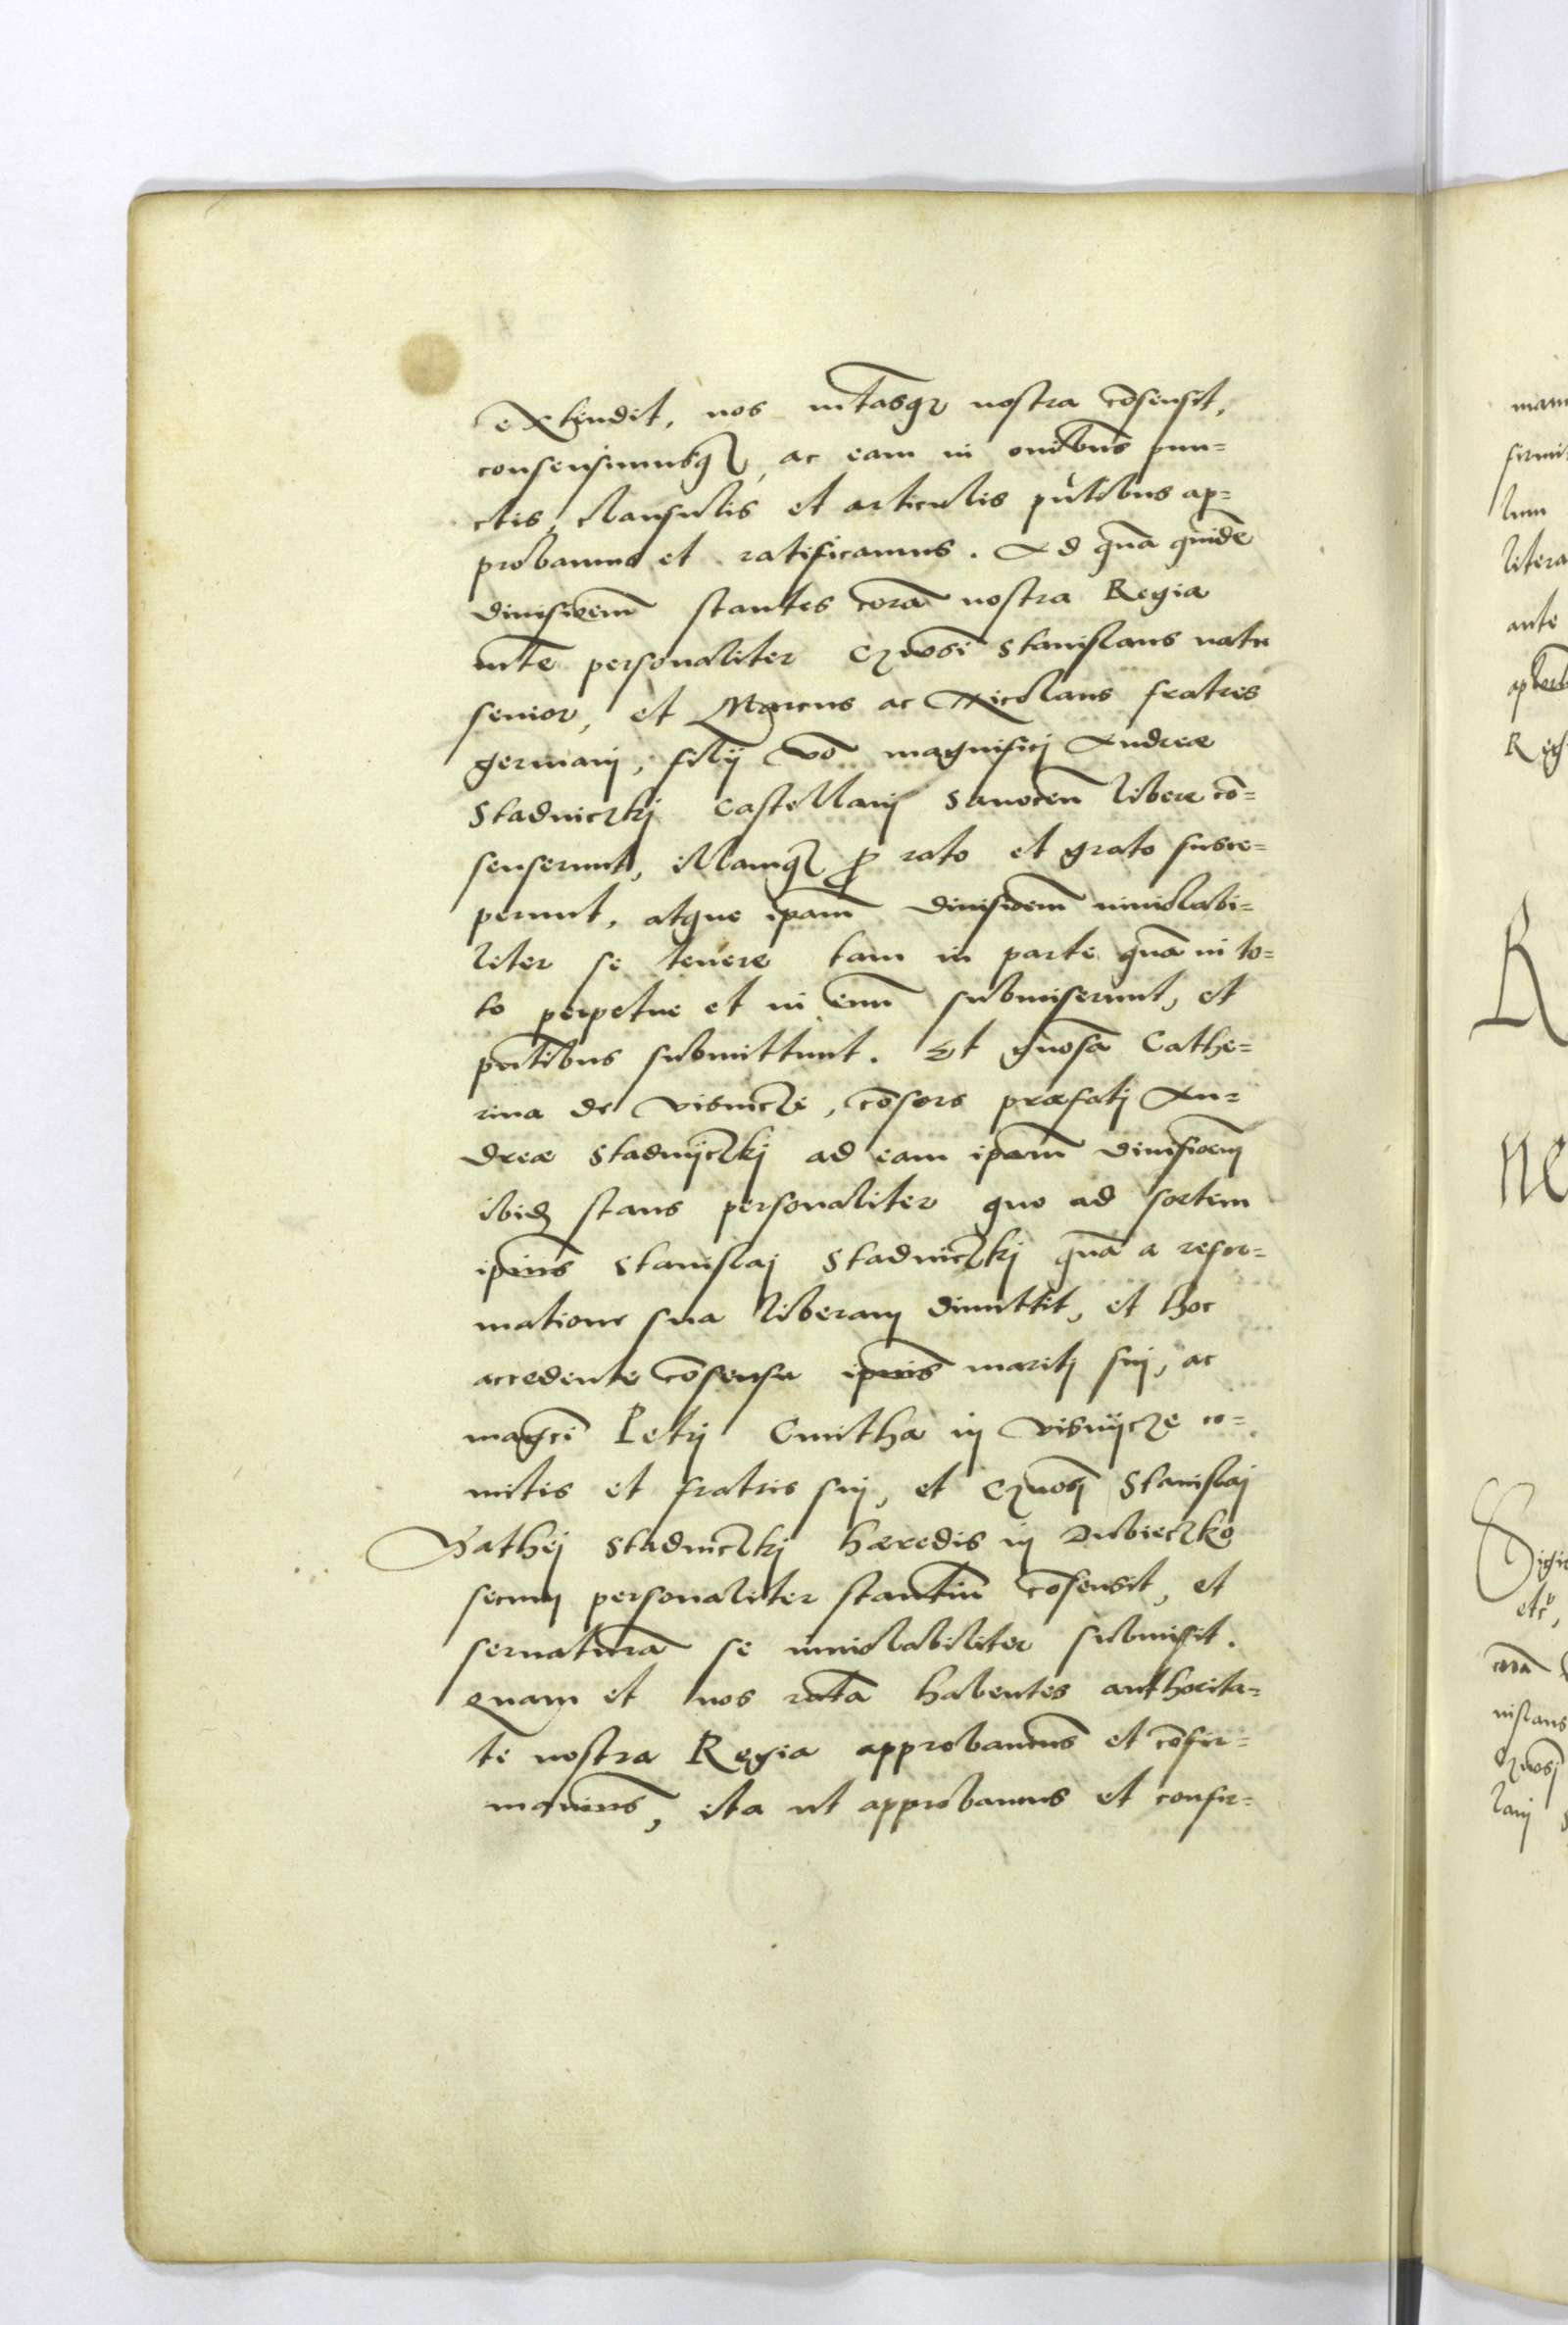 extendit, nos mt̃asq nostra cõsensit,
consensimusq, ac eam in om̃ibus pun=
ctis, clausulis et articulis pñtibus ap=
probamus et ratificamus. Ad quã quidẽ
divisioem̃ stantes corã nostra Regia
mt̃e personaliter gn̄osi Stanislaus natu
senior, et Marcus ac Nicolaus fratres
germanj, filij võ magnificj Andreæ
Stadniczkj Castellanj Sanocen̄ libere cõ=
senserunt, illamq ꝓ rato et grato susce=
perunt, atque ipam̃ divisioem̃ inviolabi=
liter se tenere tam in parte quã in to=
to perpetue et in euũ submiserunt, et
pñtibus submittunt. Et gn̄osa Cathe=
rina de Visnicze, cõsors præfatj An=
dreæ Stadnijczkj ad eam ipam̃ divisioem̃
ibidꝫ stans personaliter quo ad sortem
ipius̃ Stanislaj Stadniczkj quã a refor=
matione sua liberam dimittit, et hoc
accedente cõsensu ipius̃ maritj suj, ac
magci̅ Petrj Cmitha in Visnijcze co=
mitis et fratris suj, et gn̄osj Stanislaj
Mathej Stadniczkj hæredis in Dubieczko
secum personaliter stantiũ cõsensit, et
servaturã se inviolabiliter submisit.
Quam et nos ratã habentes authorita=
te nostra Regia approbamus et cõfir=
mamus, ita ut approbamus et confir=
litera
ante
R